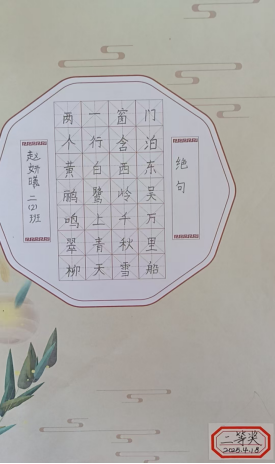 绝句
两个黄鹂鸣翠柳
一行白鹭上青天
窗含西岭千秋雪
门泊东吴万里船
赵妍曦 二(2)班
二等奖
2025.4.18